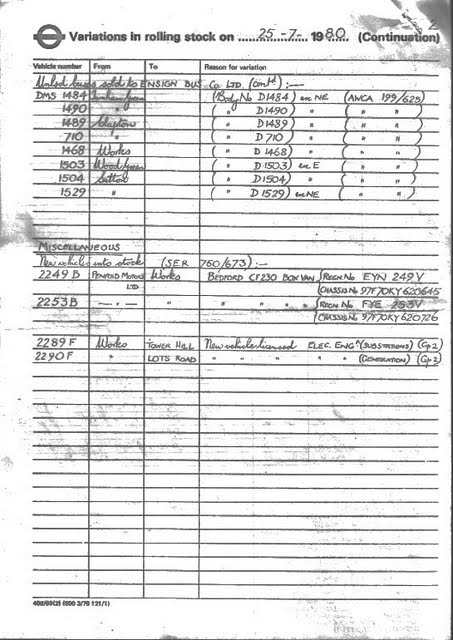 Variations in rolling stock on 25-7-1980 (Continuation)
Vehicle number From To Reason for variation
Unlsd buses sold to ENSIGN BUS Co. LTD. (contd) :—
DMS 1484 (Body No D1484) exc NE (AWCA 199/625)
1490 " ( " D1490) " ( " " )
1489 Clapton ( " D1489) " ( " " )
710 " ( " D710) " ( " " )
1468 Works ( " D1468) " ( " " )
1503 Wood Green ( " D1503) exc E ( " " )
1504 Sutton ( " D1504) " ( " " )
1529 " ( " D1529) exc NE ( " " )
MISCELLANEOUS
New vehicles into stock (SER 760/673) :—
2249 B PENFOLD MOTORS LTD Works BEDFORD CF230 BOX VAN REGN No EYN 249V
CHASSIS No 97F70KY620645
2253 B — " — " " " " REGN No FYE 253V
CHASSIS No 97F70KY620726
2289 F Works TOWER HILL New vehicle licensed ELEC. ENGR (SUBSTATIONS) (Gp 2)
2290 F " LOTS ROAD " " " " " (GENERATION) (Gp 2)
488/69(2) (600 3/79 121/1)